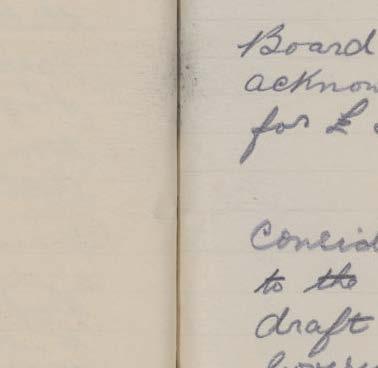 Board
acknow
for £
Consid
to the
draft